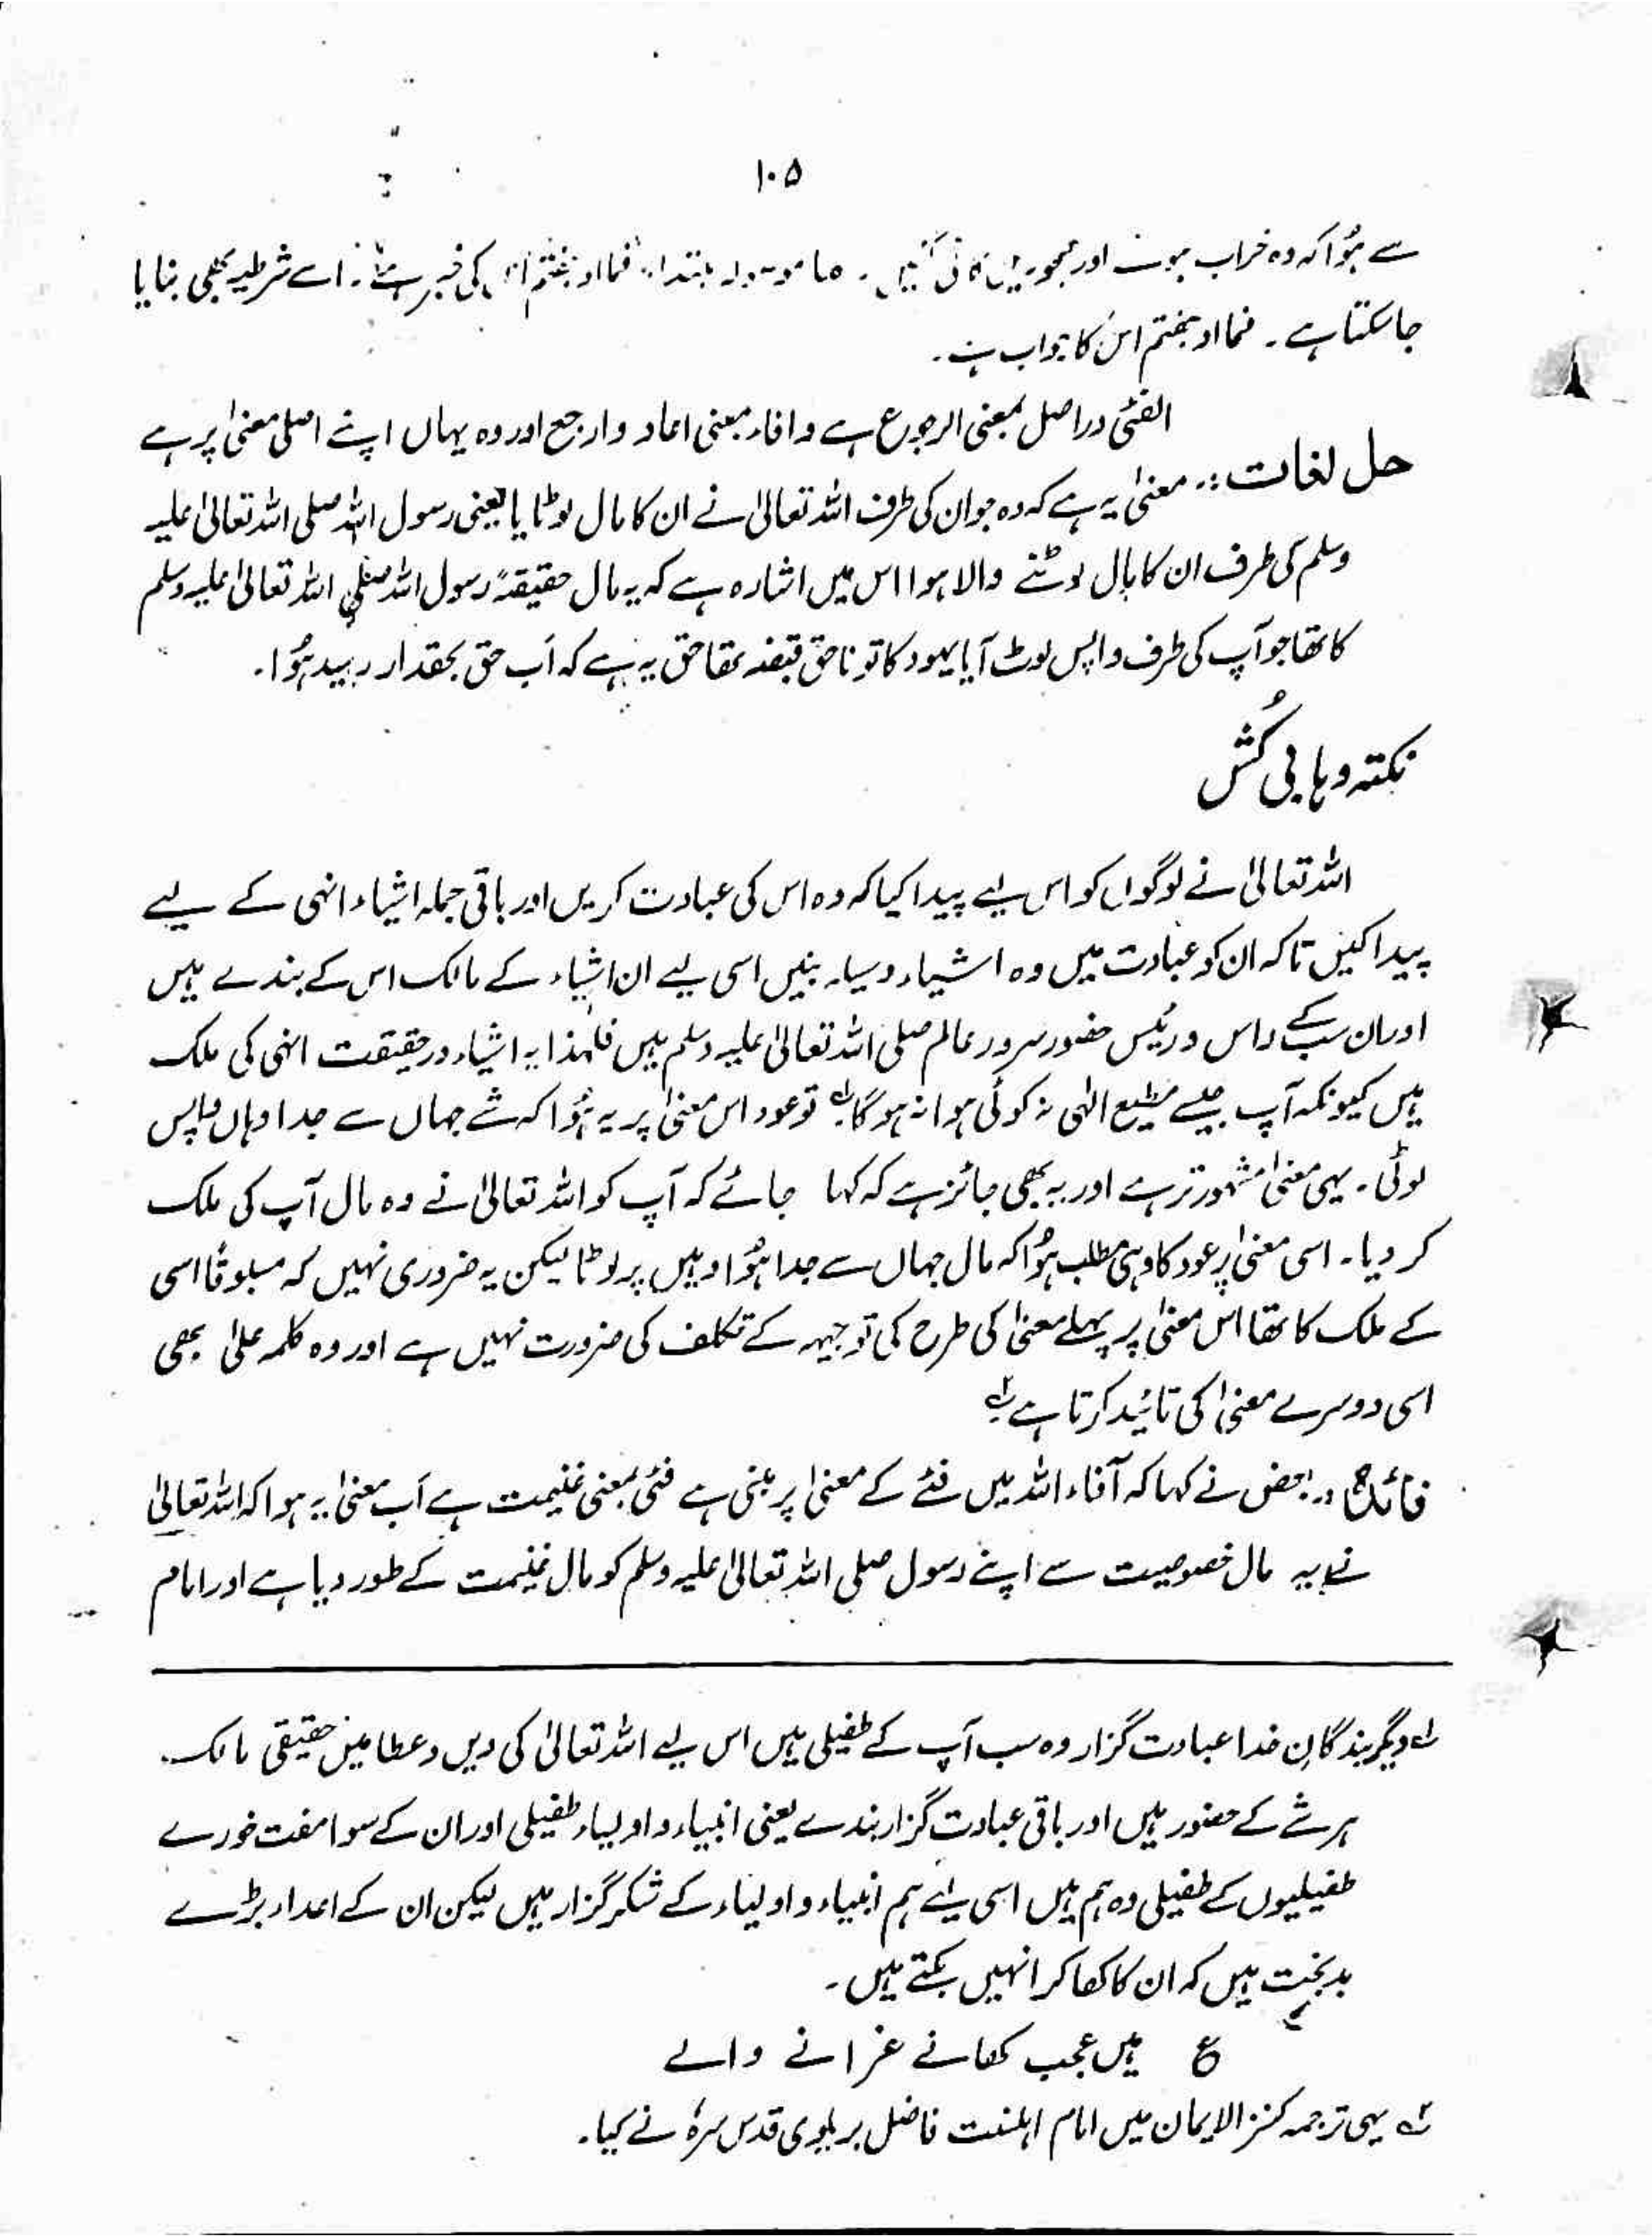 ۱۰۵
سے ہُوا کہ وہ خراب ہوئے اور کھجوریں کاٹی گئیں۔ ما موصولہ مبتدا، فما اوجفتم اس کی خبر ہے۔ اسے شرطیہ بھی بنایا
جا سکتا ہے۔ فما اوجفتم اس کا جواب ہے۔
الفئی دراصل بمعنی الرجوع ہے و افاء بمعنی اعاد و ارجع اور وہ یہاں اپنے اصلی معنیٰ پر ہے
حل لغات :۔ معنیٰ یہ ہے کہ وہ جو ان کی طرف اللہ تعالیٰ نے ان کا مال لوٹایا یعنی رسول اللہ صلی اللہ تعالیٰ علیہ
وسلم کی طرف ان کا مال لوٹنے والا ہوا اس میں اشارہ ہے کہ یہ مال حقیقۃً رسول اللہ صلی اللہ تعالیٰ علیہ وسلم
کا تھا جو آپ کی طرف واپس لوٹ آیا یہود کا تو ناحق قبضہ تھا حق یہ ہے کہ اَب حق بحقدار رسید ہُوا۔
نکتہ وہابی کُش
اللہ تعالیٰ نے لوگوں کو اس لیے پیدا کیا کہ وہ اس کی عبادت کریں اور باقی جملہ اشیاء انہی کے لیے
پیدا کیں تاکہ ان کو عبادت میں وہ اشیاء وسیلہ بنیں اسی لیے ان اشیاء کے مالک اس کے بندے ہیں
اور ان سب کے راس و رئیس حضور سرور عالم صلی اللہ تعالیٰ علیہ وسلم ہیں فلہٰذا یہ اشیاء درحقیقت انہی کی ملک
ہیں کیونکہ آپ جیسے مطیع الٰہی نہ کوئی ہوا نہ ہو گا لہ تو عود اس معنیٰ پر یہ ہُوا کہ شے جہاں سے جدا وہاں واپس
لوٹی۔ یہی معنیٰ مشہور تر ہے اور یہ بھی جائز ہے کہ کہا جائے کہ آپ کو اللہ تعالیٰ نے وہ مال آپ کی ملک
کر دیا۔ اسی معنیٰ پر عود کا وہی مطلب ہُوا کہ مال جہاں سے جدا ہُوا وہیں پر لوٹا لیکن یہ ضروری نہیں کہ مسبوقًا اسی
کے ملک کا تھا اس معنیٰ پر پہلے معنیٰ کی طرح کی توجیہہ کے تکلف کی ضرورت نہیں ہے اور وہ کلمہ علیٰ بھی
اسی دوسرے معنیٰ کی تائید کرتا ہے ۲
فائدہ :۔ بعض نے کہا کہ آفاء اللہ میں فئے کے معنیٰ پر مبنی ہے فئی بمعنی غنیمت ہے اَب معنیٰ یہ ہوا کہ اللہ تعالیٰ
نے یہ مال خصوصیت سے اپنے رسول صلی اللہ تعالیٰ علیہ وسلم کو مال غنیمت کے طور دیا ہے اور امام
لہ دیگر بندگانِ خدا عبادت گزار وہ سب آپ کے طفیلی ہیں اس لیے اللہ تعالیٰ کی دین و عطا میں حقیقی مالک
ہر شے کے حضور ہیں اور باقی عبادت گزار بندے یعنی انبیاء و اولیاء طفیلی اور ان کے سوا مفت خورے
طفیلیوں کے طفیلی وہ ہم ہیں اسی لیے ہم انبیاء و اولیاء کے شکر گزار ہیں لیکن ان کے اعداء بڑے
بدبخت ہیں کہ ان کا کھا کر انہیں بکتے ہیں۔
ع ہیں عجب کھانے غرانے والے
۲ یہی ترجمہ کنز الایمان میں امام اہلسنت فاضل بریلوی قدس سرہٗ نے کیا۔